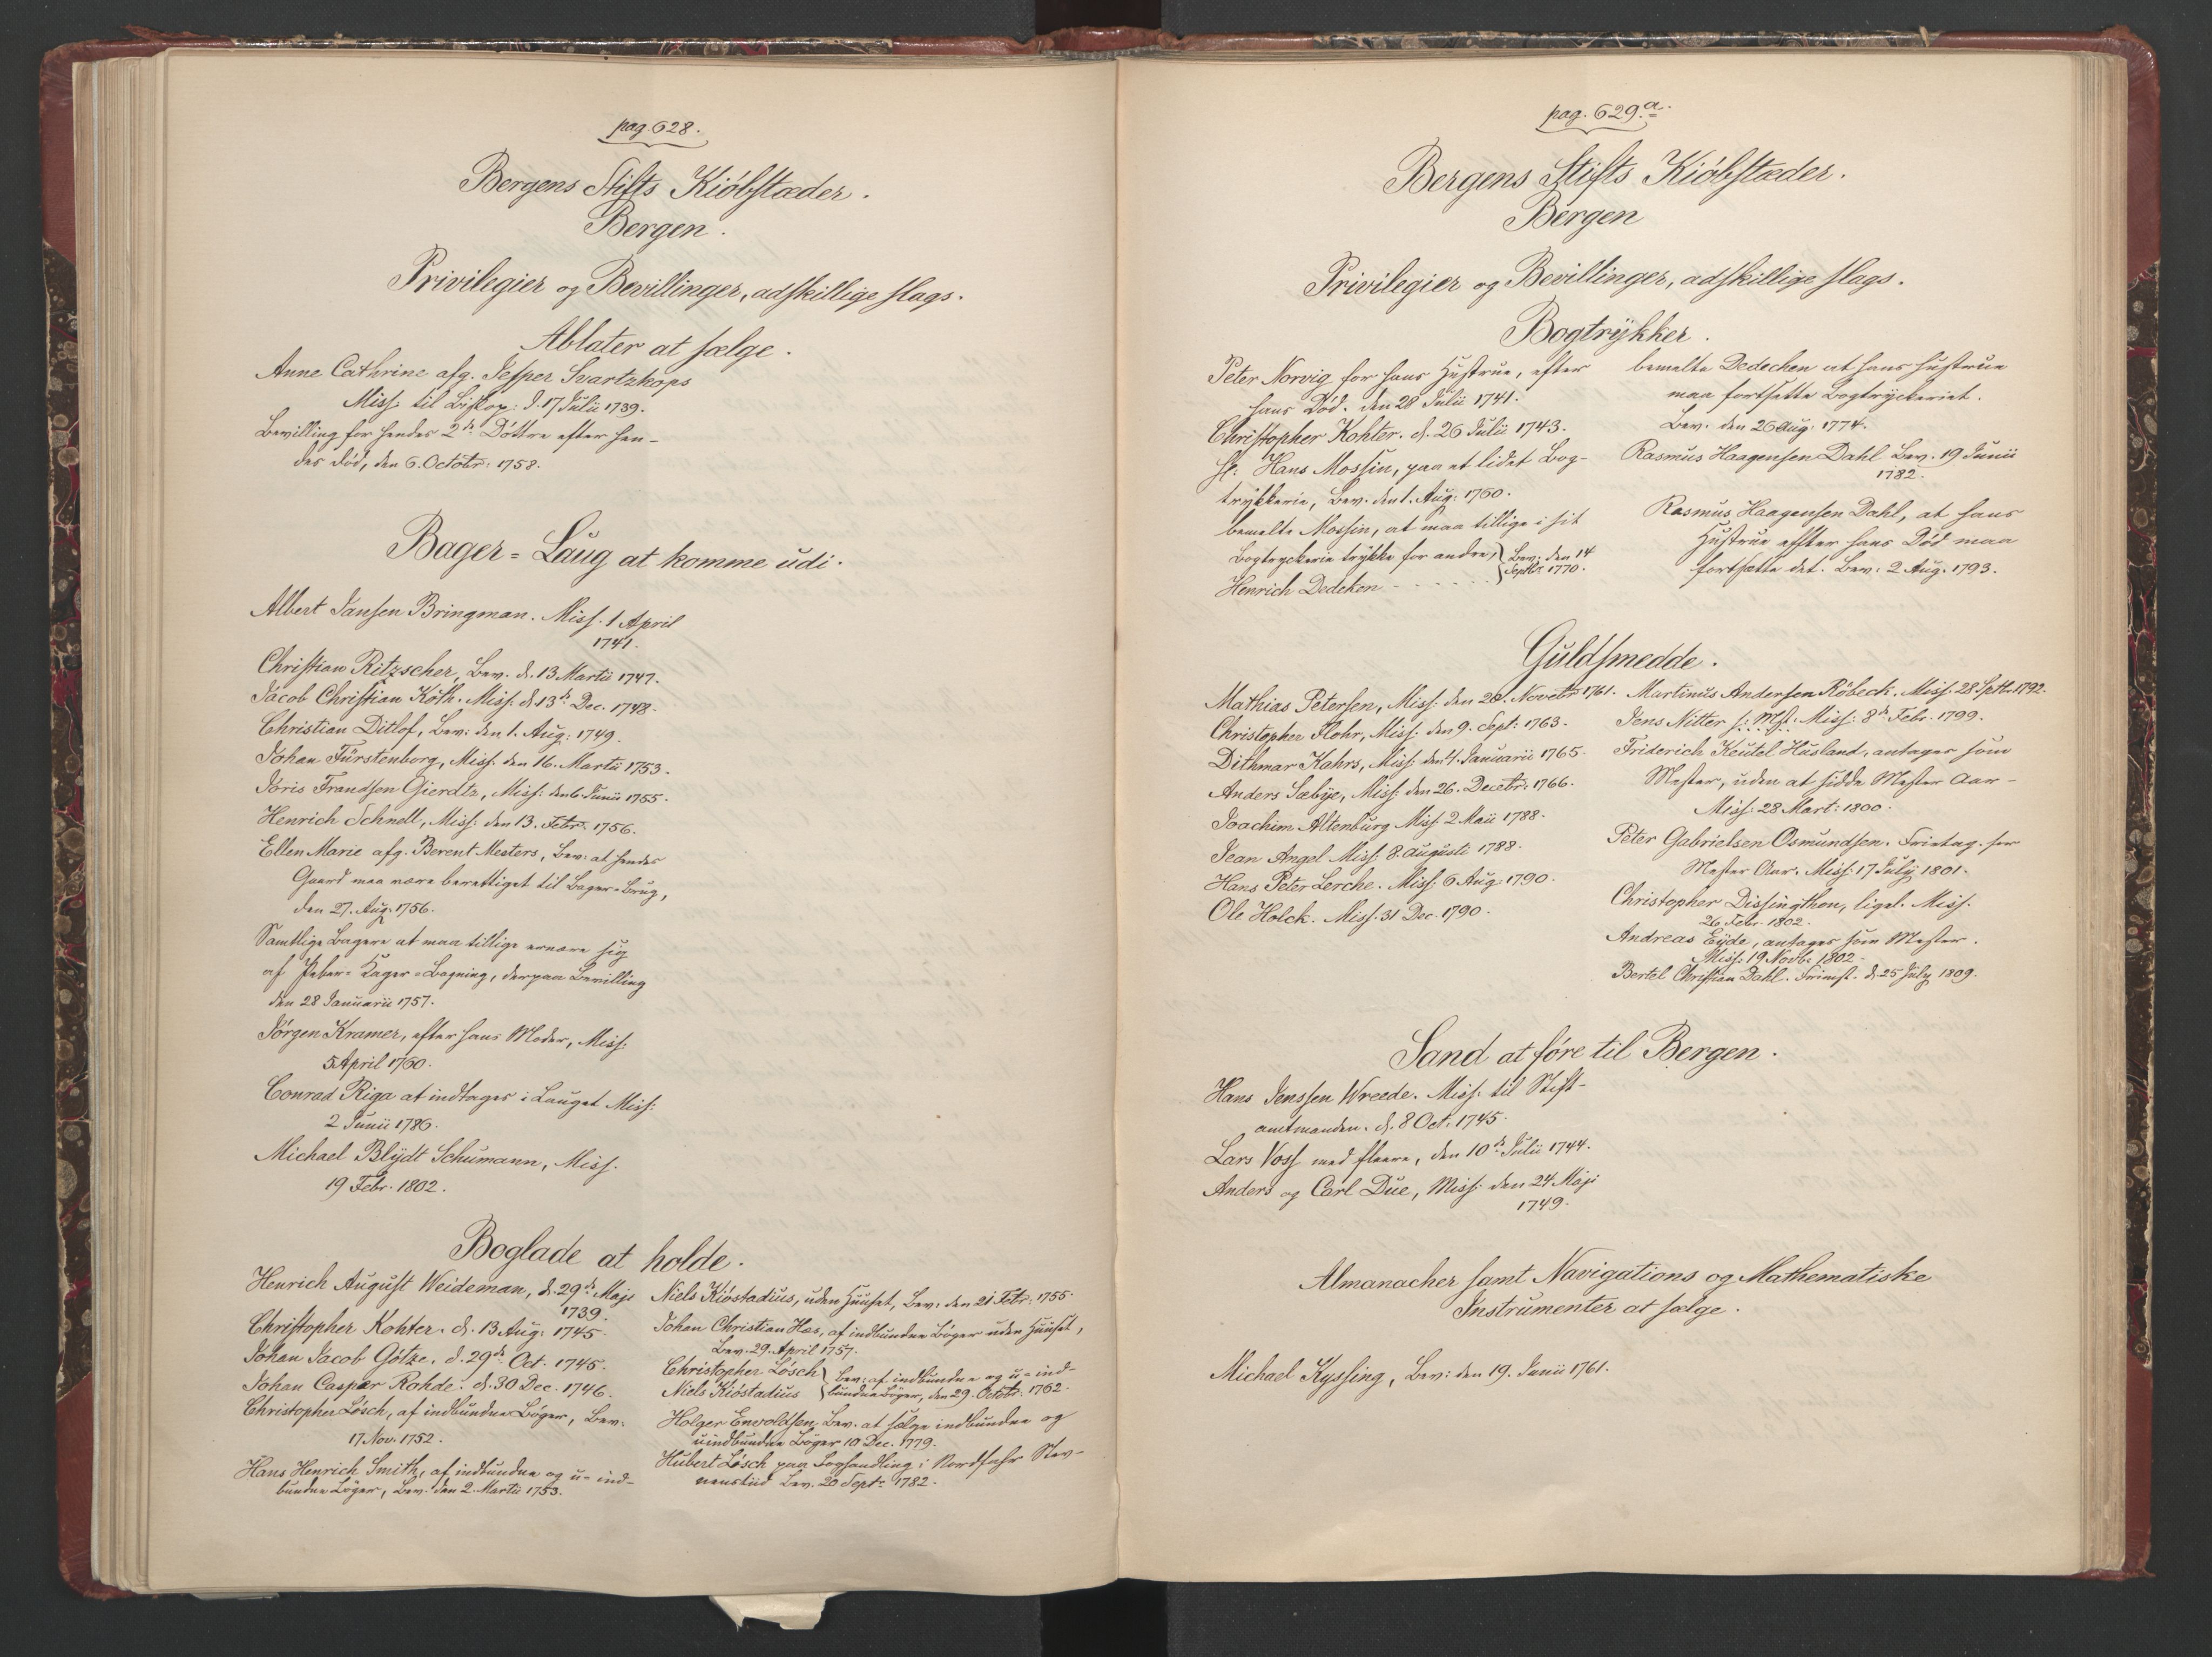 pag. 628.
Bergens Stifts Kiöbstæder.
Bergen.
Privilegier og Bevillinger, adskillige slags.
Ablater at sælge.
Anne Cathrine afg. Jesper Svartzkops
Miss: til Biskop: d. 17 Julii 1739.
Bevilling for hendes 2de Döttre efter hen-
des død, den 6. Octobr: 1758.
Bager-Laug at komme udi.
Albert Jansen Bringman. Miss. 1 April
1741.
Christian Ritzscher, Bev. d. 13 Martii 1747.
Jacob Christian Köth. Miss: d. 13de Dec. 1748.
Christian Ditlof, Bev: den 1. Aug: 1749.
Johan Fürstenborg, Miss. den 16. Martii 1753.
Joris Frandsen Gierdtz, Miss: den 6. Junii 1755.
Henrich Schnell, Miss. den 13. Febr. 1756.
Ellen Marie afg. Berent Mesters, Bev: at hendes
Gaard maa være berettiget til Bager-Brug,
den 27. Aug. 1756.
Samtlige Bagere at maa tillige ernære sig
af Peber-Kager-Bagning, derpaa Bevilling
den 28 Januarii 1757.
Jörgen Kramer, efter hans Moder, Miss:
5 April 1760.
Conrad Riga at indtages i Lauget Miss:
2 Junii 1786.
Michael Blÿdt Schumann, Miss.
19 Febr. 1802.
Boglade at holde.
Henrich August Weideman, d. 29de Maji
1739.
Christopher Kohter. d. 13 Aug: 1745.
Johan Jacob Götze. d. 29de Oct. 1745.
Johan Casper Rohde. d. 30 Dec. 1746.
Christopher Lösch, af indbundne Böger, Bev:
17 Nov. 1752.
Hans Henrich Smith, af indbundne og u-ind-
bundne Böger, Bev. den 2. Martii 1753.
Niels Kiöstadius, uden Huuset, Bev: den 21 Febr: 1755.
Johan Christian Hæs, af indbundne Böger uden Huuset,
Bev. 29. April 1757.
Christopher Lösch } Bev: af indbundne og u-ind-
Niels Kiöstadius } bundne Böger, den 29. Octobr: 1762.
Holger Envoldsen, Bev. at sælge indbundne og
uindbundne Böger 10 Dec. 1779.
Hubert Lösch paa Boghandling i Nordfahr Stev-
nenstiid Bev. 20 Septr. 1782.
pag. 629.a.
Bergens Stifts Kiöbstæder.
Bergen
Privilegier og Bevillinger, adskillige slags.
Bogtrÿkker.
Peter Norvig for hans Hustrue, efter
hans Död. den 28 Julii 1741.
Christopher Kohter. d. 26 Julii 1743.
Hr: Hans Mossin, paa et lidet Bog-
trÿkkerie, Bev. den 1. Aug: 1760.
bemelte Mossin, at maa tillige i sit
Bogtryckerie trÿkke for andre, } Bev: den 14
Henrich Dedeken - - - - - - } Septbr. 1770.
bemelte Dedechen at hans hustrue
maa fortsette Bogtrÿckeriet.
Bev. den 26 Aug: 1774.
Rasmus Haagensen Dahl Bev. 19 Junii
1782.
Rasmus Haagensen Dahl, at hans
Hustrue effter hans Död maa
fortsætte det. Bev: 2 Aug. 1793.
Guldsmedde.
Mathias Petersen, Miss: den 20. Novebr 1761.
Christopher Flohr, Miss. den 9. Sept: 1763.
Dithmar Kahrs, Miss: den 4. Januarii 1765.
Anders Sæbÿe, Miss: den 26. Decebr: 1766.
Joachim Altenburg Miss. 2 Maii 1788.
Jean Angel Miss: 8. Augusti 1788.
Hans Peter Lerche. Miss: 6 Aug: 1790.
Ole Holck. Miss. 31 Dec. 1790.
Martinus Andersen Röbeck. Miss. 28 Sptbr. 1792.
Jens Nitter s: Mst. Miss: 8de Febr. 1799.
Friderich Keutel Husland, antages som
Mester, uden at sidde Mester Aar-
Miss: 28 Mart: 1800.
Peter Gabrielsen Osmundsen. Frietag. for
Mester Aar. Miss: 17 Julÿ 1801.
Christopher Dissingthon, ligel. Miss.
26 Febr. 1802.
Andreas Eÿde, antages som Mester.
Miss: 19 Novb: 1802-
Bertel Christian Dahl. Frimst. d. 25 July 1809.
Sand at före til Bergen.
Hans Jenssen Wreede. Miss. til Stift-
amtmanden. d. 8 Oct. 1745.
Lars Voss med fleere, den 10de Julii 1744.
Anders og Carl Due, Miss: den 24 Maji
1749.
Almanacher samt Navigations og Mathematiske
Instrumenter at sælge.
Michael Kyssing, Bev: den 19. Junii 1761.